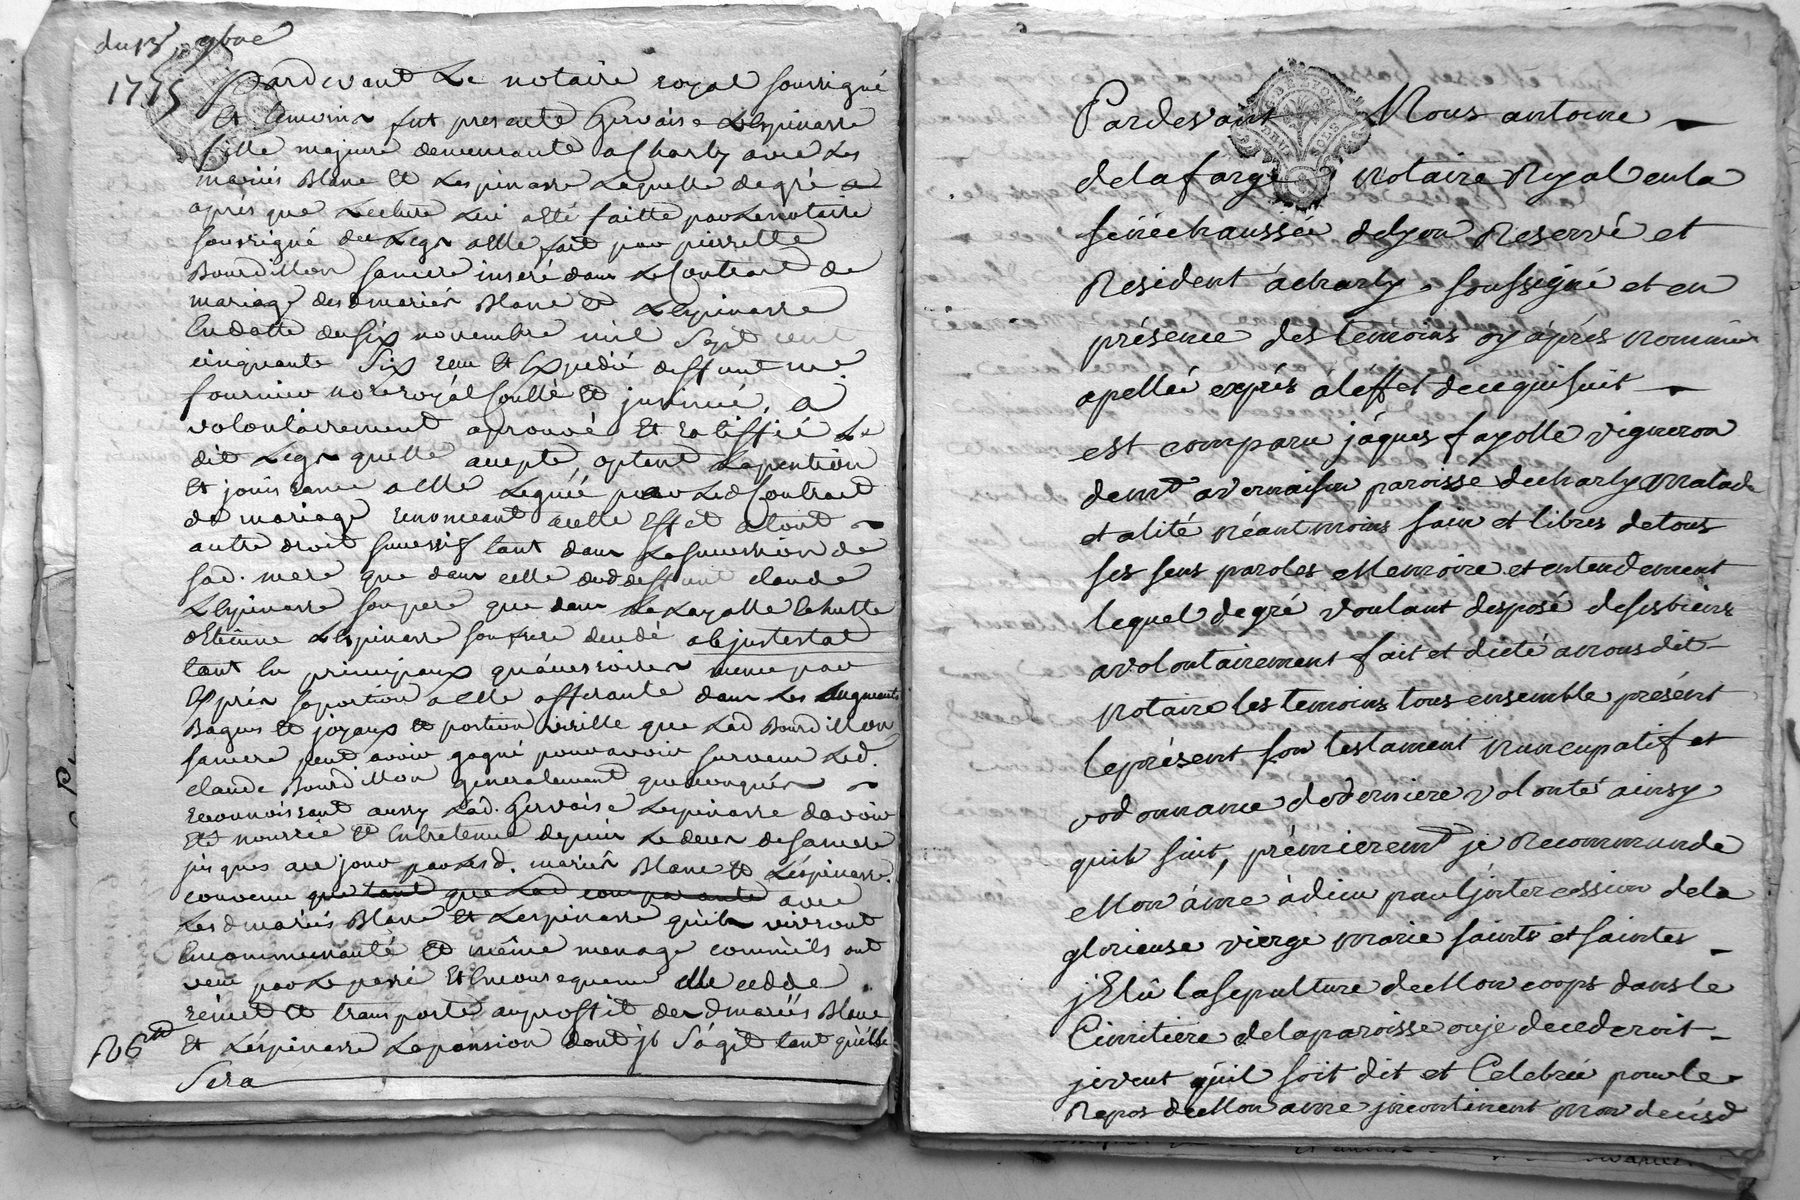 du 13 9bre
1775
Pardevant Le notaire royal soussigné
Et temoins fut presente Gervaise Lespinasse
fille majeure demeurante a Charly avec Les
mariés Blanc Et Lespinasse Laquelle de gré a
aprés que Lecture Lui a été faitte par Le notaire
soussigné du Legs a Elle fait par pierrette
Bourdillon sa mere inseré dans Le Contract de
mariage desd mariés Blanc Et Lespinasse
En datte du six novembre mil Sept cent
cinquante Six reçu Et Expedié deffunt me
fournier nore royal Controllé Et insinué, a
volontairement aprouvé Et ratiffié Le
dit Legs qu'elle accepte, optant La pention
Et jouissance a Elle Leguée par Led Contract
de mariage renonceant a cette Effet a tout
autre droit successif tant dans La succession de
sad. mere que dans celle dud deffunt claude
Lespinasse son pere que dans
d'Etienne Lespinasse son frere decedé abjntestat
tant En principaux qu'accessoires meme par
Exprés sa portion a Elle afferante dans Les augments
Bagues Et joyaux Et portion virille que Lad Bourdillon
sa mere peut avoir gagné pour avoir survecu Led.
claude Bourdillon generalement quelconques
reconnoissant aussy Lad. Gervaise Lespinasse d'avoir
Eté nourrie Et Entretenue depuis Le deces de sa mere
jusques a ce jour par Lesd. mariés Blanc Et Lespinasse.
convenu que tant que Lad comparante avec
Lesd mariés Blanc Et Lespinasse qu'ils vivront
En communauté Et même menage comm'ils ont
vecu par Le passé Et En consequence elle cedde
rémet Et transporte au proffit desd mariés Blanc
Et Lespinasse La pansion dont jl S'agit tant qu'elle
Sera
Pardevant Nous antoine
delafarge Notaire Royal en la
sénéchaussée de Lyon Reservé et
Résident à charly soussigné et en
présence des temoins cy aprés nommés
apellée exprés à l'effet de ce qui suit
est comparu jàques fayolle vigneron
demt a vernaison paroisse de charly Malade
et alité néantmoins sain et libres de tous
ses sens paroles Memoire et entendement
lequel de gré voulant disposé de ses biens
a volontairement fait et dicté a nousdit
Notaire les temoins tous ensemble présent
le présent son testament Nuncupatif et
ordonnance de derniere volonté ainsy
qu'il suit, prémierement je Recommande
Mon âme à dieu par l'jntercession de la
glorieuse vierge Marie saints et saintes
j'Elû la sepulture de Mon corps dans le
Cimitiere de la paroisse ou je decederoit
je veut qu'il soit dit et Celebrée pour le
Repos de Mon ame jncontinent Mon decésd